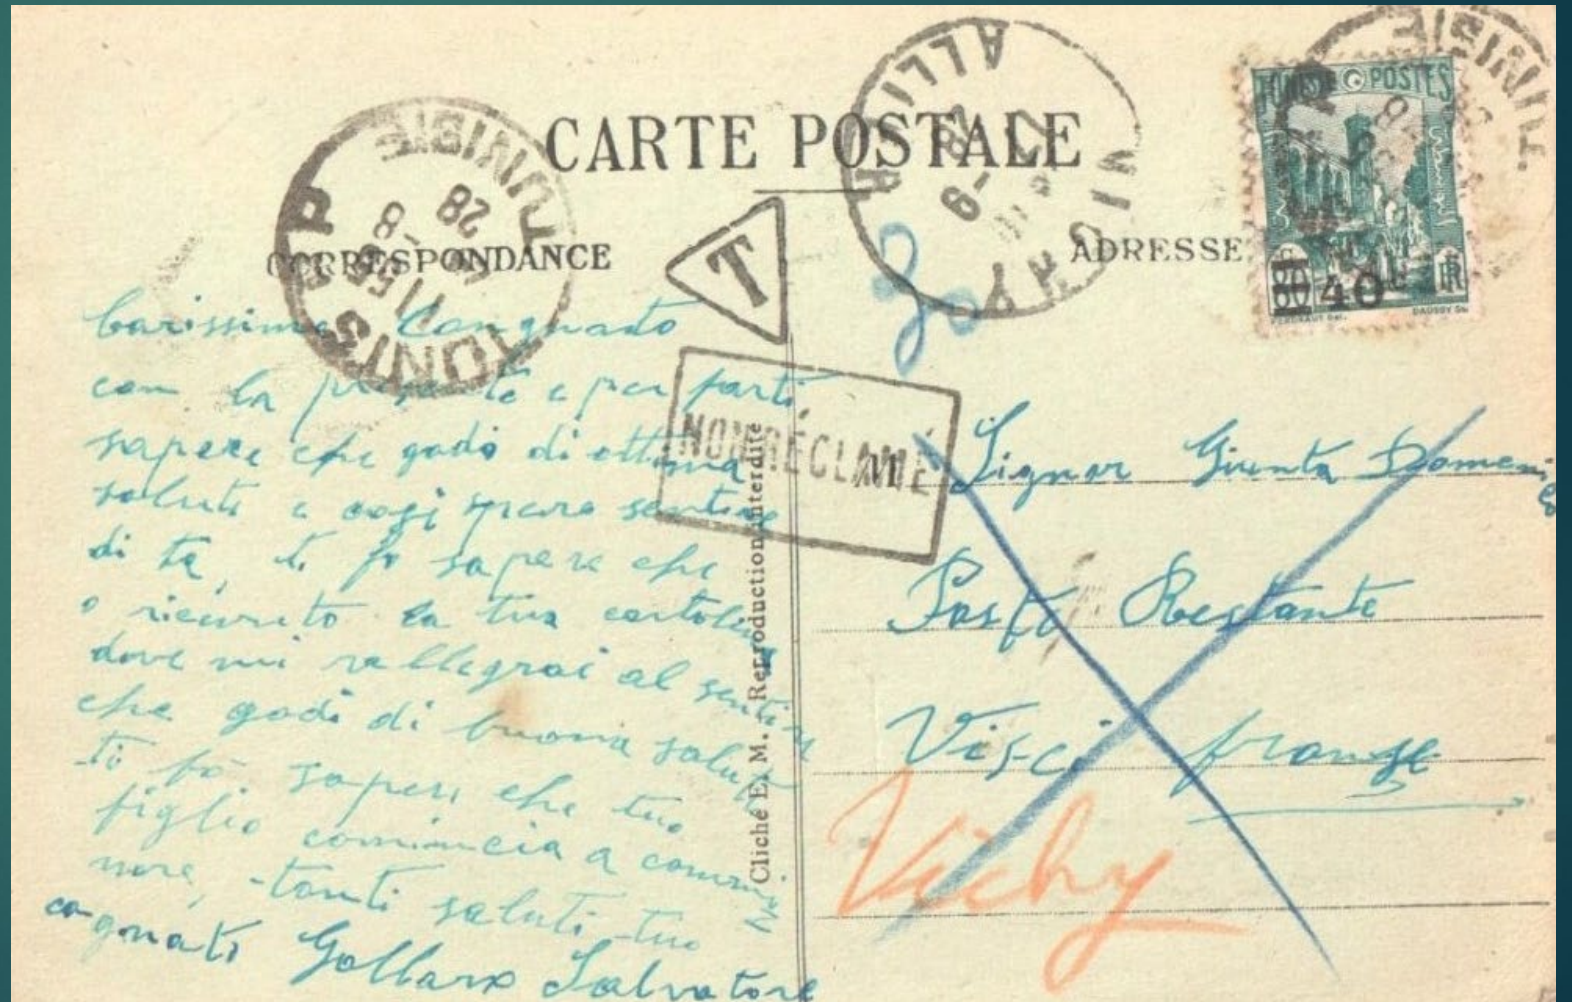 CARTE POSTALE
CORRESPONDANCE
ADRESSE
TUNIS R.P.
TUNISIE
28
VICHY
ALLIER
T
NON RÉCLAMÉ
TUNISIE POSTES
40
RF
DAUSSY
Carissimo Congnato
con la presente e per farti
sapere che godo di ottima
saluti e cosi spero sentire
di te, ti fo sapere che
o ricevuto la tua cartolina
dove mi rallegrai al sentire
che godi di buona salute
ti fo sapere che tuo
figlio comincia a cammi
nare, tanti saluti tuo
cognati Gollaro Salvatore
Cliché E. M. - Reproduction interdite
M
Signor Giunta Domenico
Posta Restante
Visci franse
Vichy